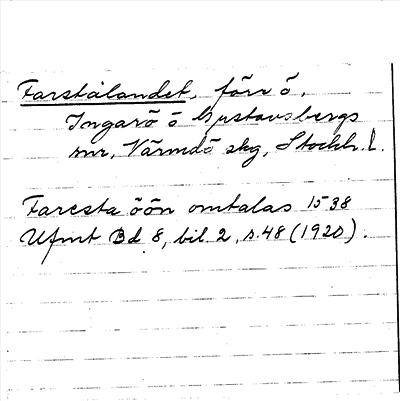 Farstalandet, förr ö,
Ingarö o Gustavsbergs
snr, Värmdö skg, Stockh. L.
Faresta öön omtalas 1538
Ufmt Bd 8, bil. 2, s. 48 (1920).